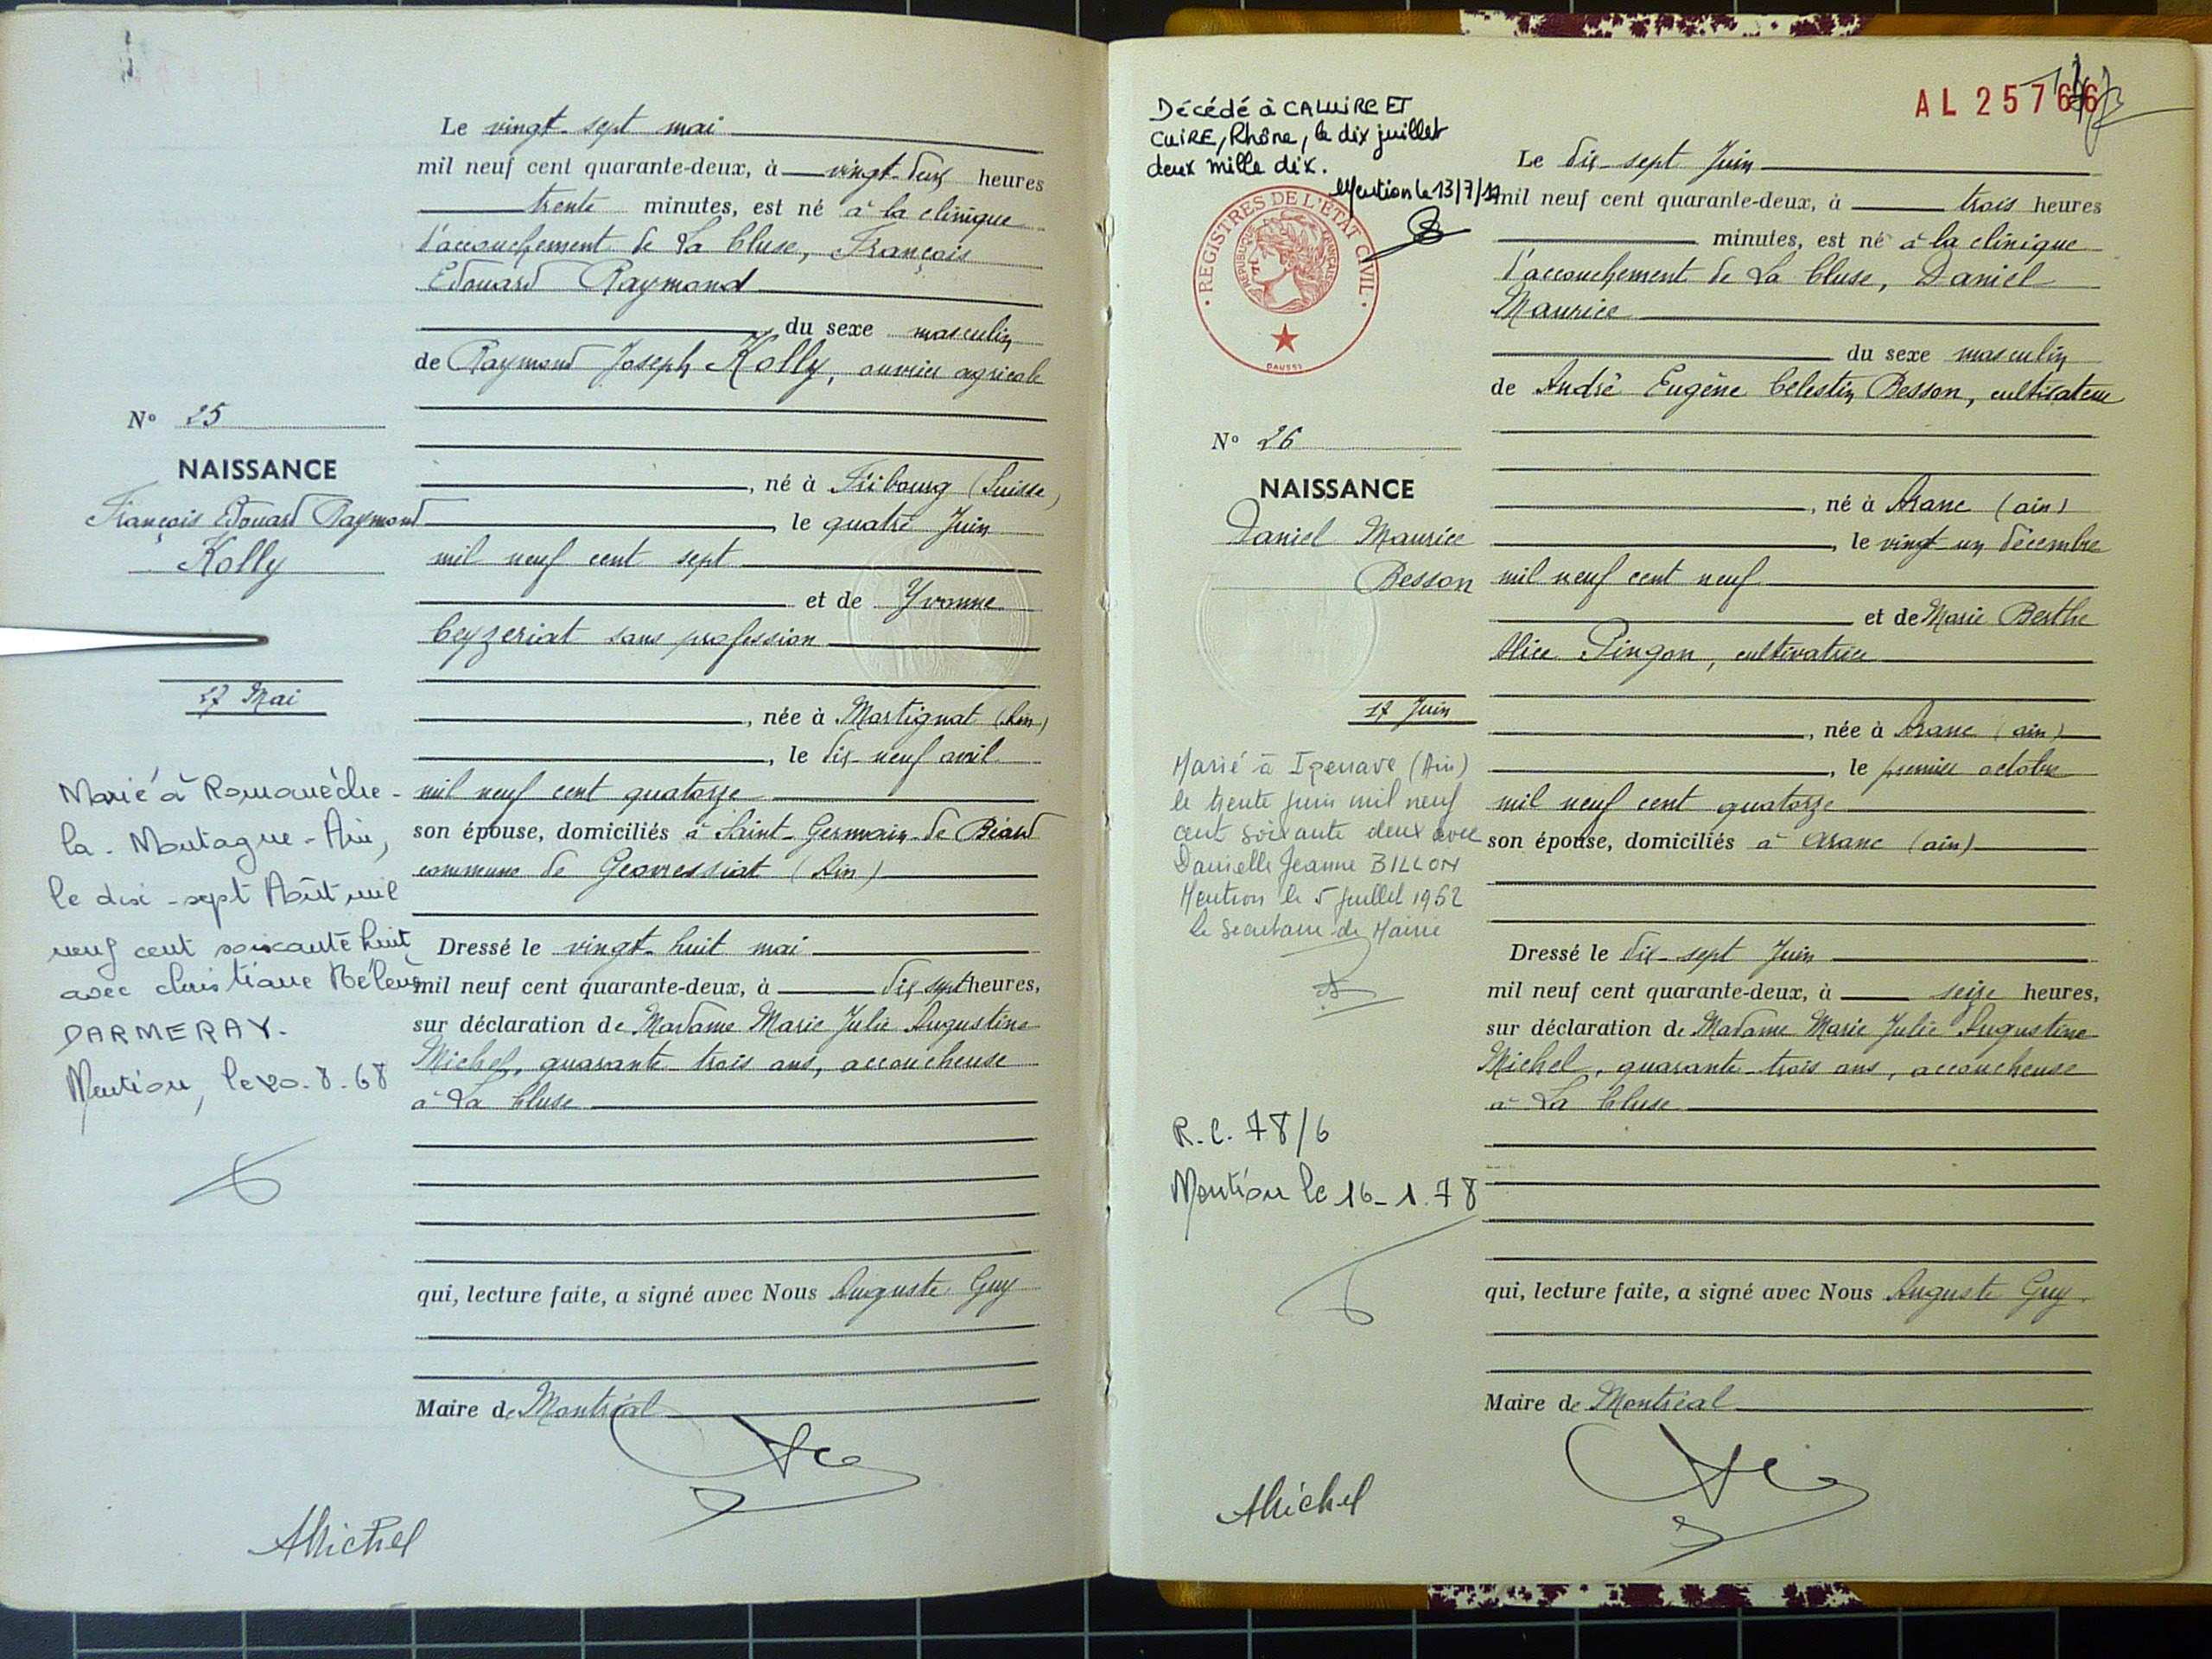 Le vingt-sept mai
mil neuf cent quarante-deux, à vingt-deux heures
trente minutes, est né à la clinique
d'accouchement de La Cluse, François
Edouard Raymond
du sexe masculin
de Raymond Joseph Kolly, ouvrier agricole
N° 25
NAISSANCE
François Edouard Raymond
Kolly
27 Mai
, né à Fribourg (Suisse)
, le quatre Juin
mil neuf cent sept
et de Yvonne
Ceyzeriat sans profession
, née à Martignat (Ain)
, le dix-neuf avril
mil neuf cent quatorze
son épouse, domiciliés à Saint-Germain-de Béard
commune de Geovressiat (Ain)
Marié à Romanèche-
la-Montagne-Ain,
le dix-sept Août mil
neuf cent soixante huit
avec Christiane Hélène
DARMERAY.
Mention, le 20.8.68
Dressé le vingt-huit mai
mil neuf cent quarante-deux, à dix sept heures,
sur déclaration de Madame Marie Julie Augustine
Michel, quarante trois ans, accoucheuse
à La Cluse
qui, lecture faite, a signé avec Nous Auguste Guy
Maire de Montréal
AMichel
AL 25766
Décédé à CALUIRE ET
CUIRE, Rhône, le dix juillet
deux mille dix.
Mention le 13/7/10
REGISTRES DE L'ÉTAT CIVIL
RÉPUBLIQUE FRANÇAISE
Le dix-sept Juin
mil neuf cent quarante-deux, à trois heures
minutes, est né à la clinique
d'accouchement de La Cluse, Daniel
Maurice
du sexe masculin
de André Eugène Célestin Besson, cultivateur
N° 26
NAISSANCE
Daniel Maurice
Besson
17 Juin
, né à Aranc (ain)
, le vingt un décembre
mil neuf cent neuf
et de Marie Berthe
Alice Pingon, cultivatrice
, née à Aranc (ain)
, le premier octobre
mil neuf cent quatorze
son épouse, domiciliés à Aranc (ain)
Marié à Izenave (Ain)
le trente juin mil neuf
cent soixante deux avec
Danielle Jeanne BILLON
Mention le 5 Juillet 1962
Le Secrétaire de Mairie
R.C. 78/6
Mention le 16-1.78
Dressé le dix-sept Juin
mil neuf cent quarante-deux, à seize heures,
sur déclaration de Madame Marie Julie Augustine
Michel, quarante-trois ans, accoucheuse
à La Cluse
qui, lecture faite, a signé avec Nous Auguste Guy.
Maire de Montréal
AMichel